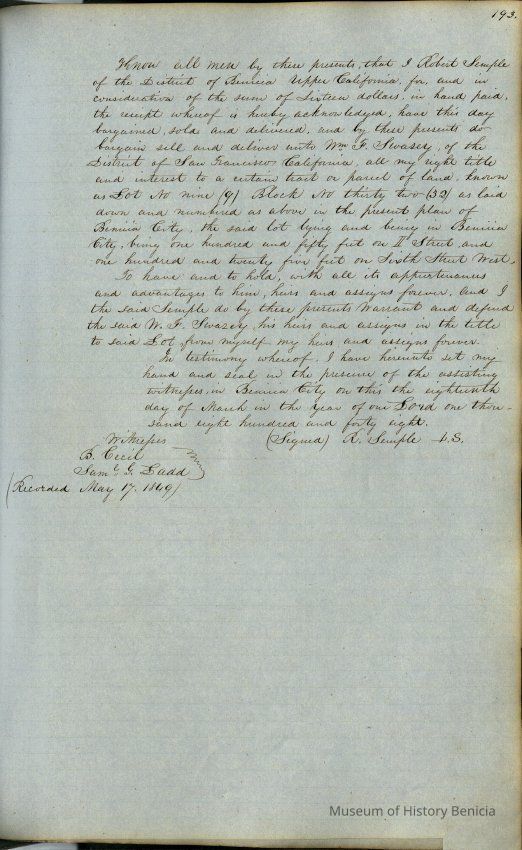 193.
Know all men by these presents, that I Robert Semple
of the District of Benicia Upper California, for, and in
consideration of the sum of Sixteen dollars, in hand paid,
the receipt whereof is hereby acknowledged, have this day
bargained, sold and delivered, and by these presents do
bargain sell and deliver unto Wm F. Swasey, of the
District of San Francisco California, all my right title
and interest to a certain tract or parcel of land, known
as Lot No nine (9) Block No thirty two (32) as laid
down and numbered as above in the present plan of
Benicia City, the said lot lying and being in Benicia
City, being one hundred and fifty feet on II Street and
one hundred and twenty five feet on Sixth Street West.
To have and to hold, with all its appurtenances
and advantages to him, heirs and assigns forever, and I
the said Semple do by these presents Warrant and defend
the said W. F. Swasey, his heirs and assigns in the title
to said Lot, from myself my heirs and assigns forever.
In testimony whereof, I have hereunto set my
hand and seal in the presence of the assisting
witnesses, in Benicia City on this the eighteenth
day of March in the Year of our Lord one thou-
sand eight hundred and forty eight.
Witnesses (Signed) R. Semple L.S.
B. Cecil
Saml. G. Ladd
(Recorded May 17. 1849)
Museum of History Benicia